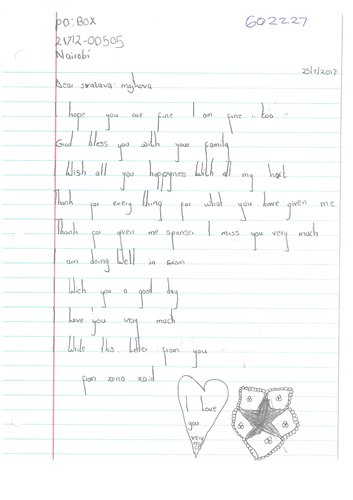 PO: BOX
602227
21712-00505
Nairobi
Dear svatava majkova
I hope you are fine I am fine too
God bless you with your family
Wish all you happyness with all my hart
Thank for every thing for what you have given me
Thank for given me sponser I miss you very much
I am doing well in exam
Wich you a good day
Love you very much
Write this letter from you
from zena zaid
I Love
you
very
much